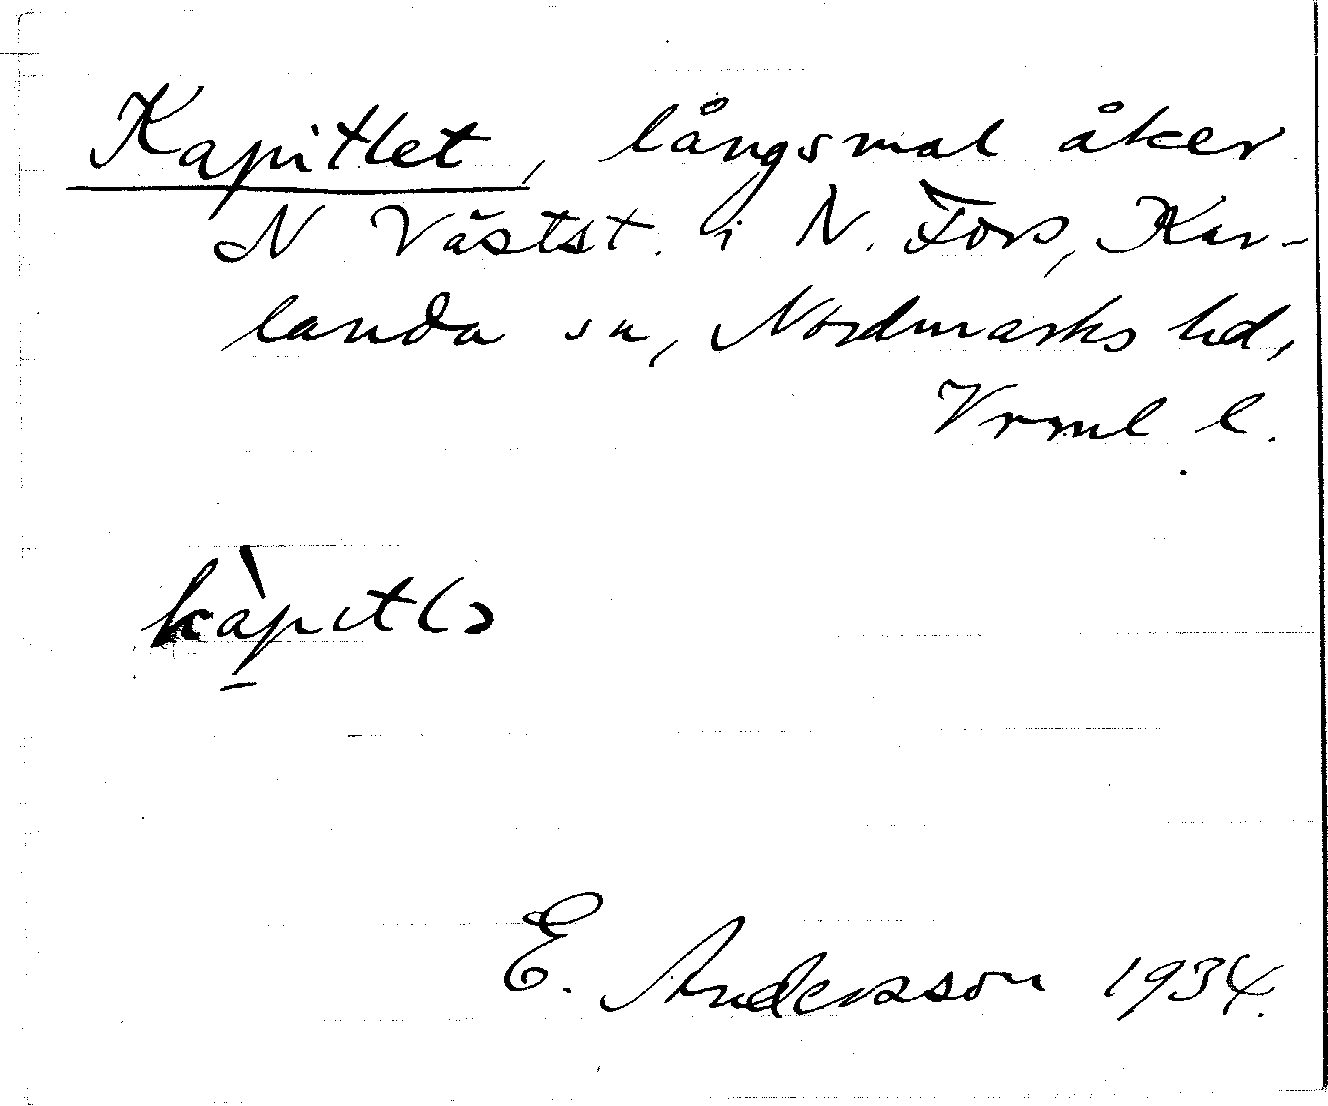 Kapitlet, långsmal åker
N Västst. i N. Fors, Kar-
landa sn, Nordmarks hd,
Vrml l.
kàpıtlə
E. Andersson 1934.